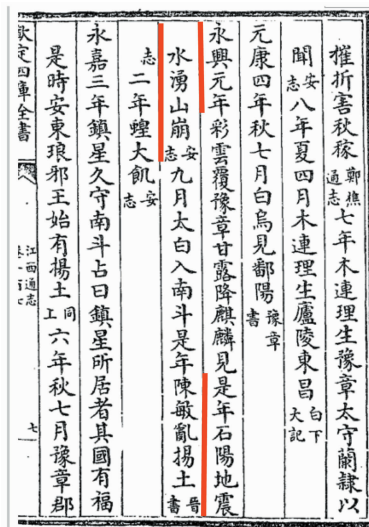 摧折害秋稼鄭樵通志七年木連理生豫章太守蘭隸以
聞安志八年夏四月木連理生廬陵東昌白下大記
元康四年秋七月白烏見鄱陽豫章書
永興元年彩雲覆豫章甘露降麒麟見是年石陽地震
水湧山崩安志九月太白入南斗是年陳敏亂揚土晉書
志二年蝗大飢安志
永嘉三年鎮星久守南斗占曰鎮星所居者其國有福
是時安東琅邪王始有揚土同上六年秋七月豫章郡
欽定四庫全書
江西通志
七